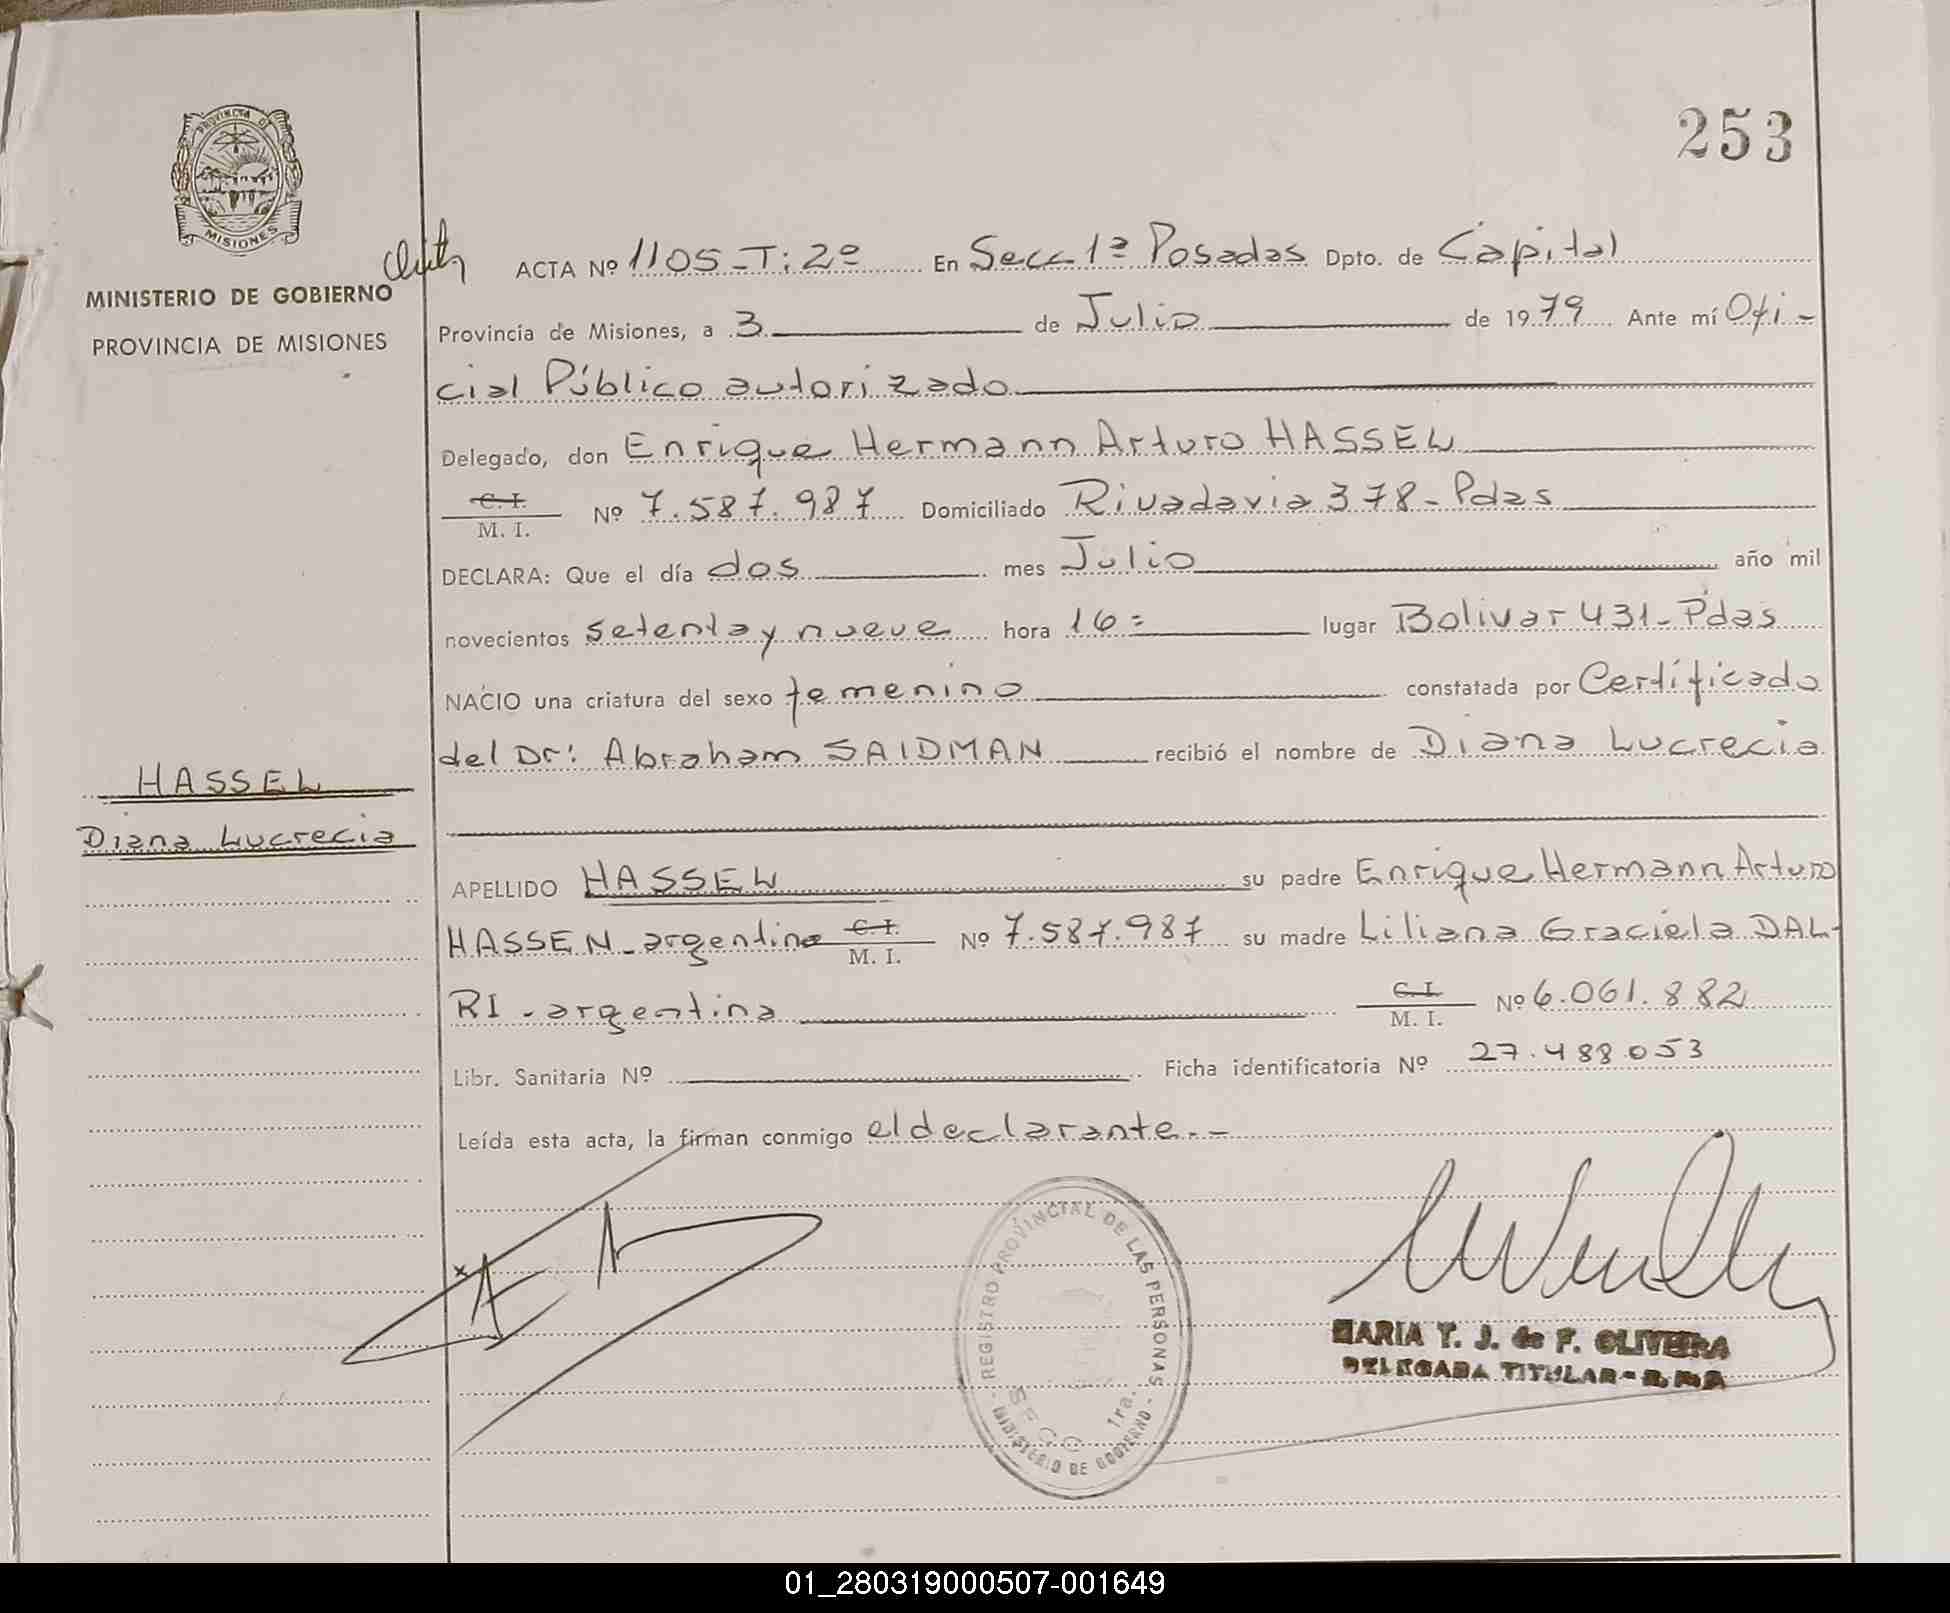 253
PROVINCIA DE
MISIONES
MINISTERIO DE GOBIERNO
PROVINCIA DE MISIONES
ACTA Nº 1105-T: 2º En Secc 1ª Posadas Dpto. de Capital
Provincia de Misiones, a 3 de Julio de 1979 Ante mí Ofi-
cial Público autorizado
Delegado, don Enrique Hermann Arturo HASSEL
C. I.
M. I.
Nº 7.587.987 Domiciliado Rivadavia 378-Pdas
DECLARA: Que el día dos mes Julio año mil
novecientos setenta y nueve hora 16= lugar Bolivar 431-Pdas
NACIO una criatura del sexo femenino constatada por Certificado
del Dr: Abraham SAIDMAN recibió el nombre de Diana Lucrecia
HASSEL
Diana Lucrecia
APELLIDO HASSEL su padre Enrique Hermann Arturo
HASSEN-argentino C. I. Nº 7.587.987 su madre Liliana Graciela DAL-
M. I.
RI-argentina C. I. Nº 6.061.882
M. I.
Libr. Sanitaria Nº Ficha identificatoria Nº 27.488.053
Leída esta acta, la firman conmigo el declarante.-
REGISTRO PROVINCIAL DE LAS PERSONAS
SECC 1ra.
MINISTERIO DE GOBIERNO
MARIA T. J. de F. OLIVEIRA
DELEGADA TITULAR-
01_280319000507-001649